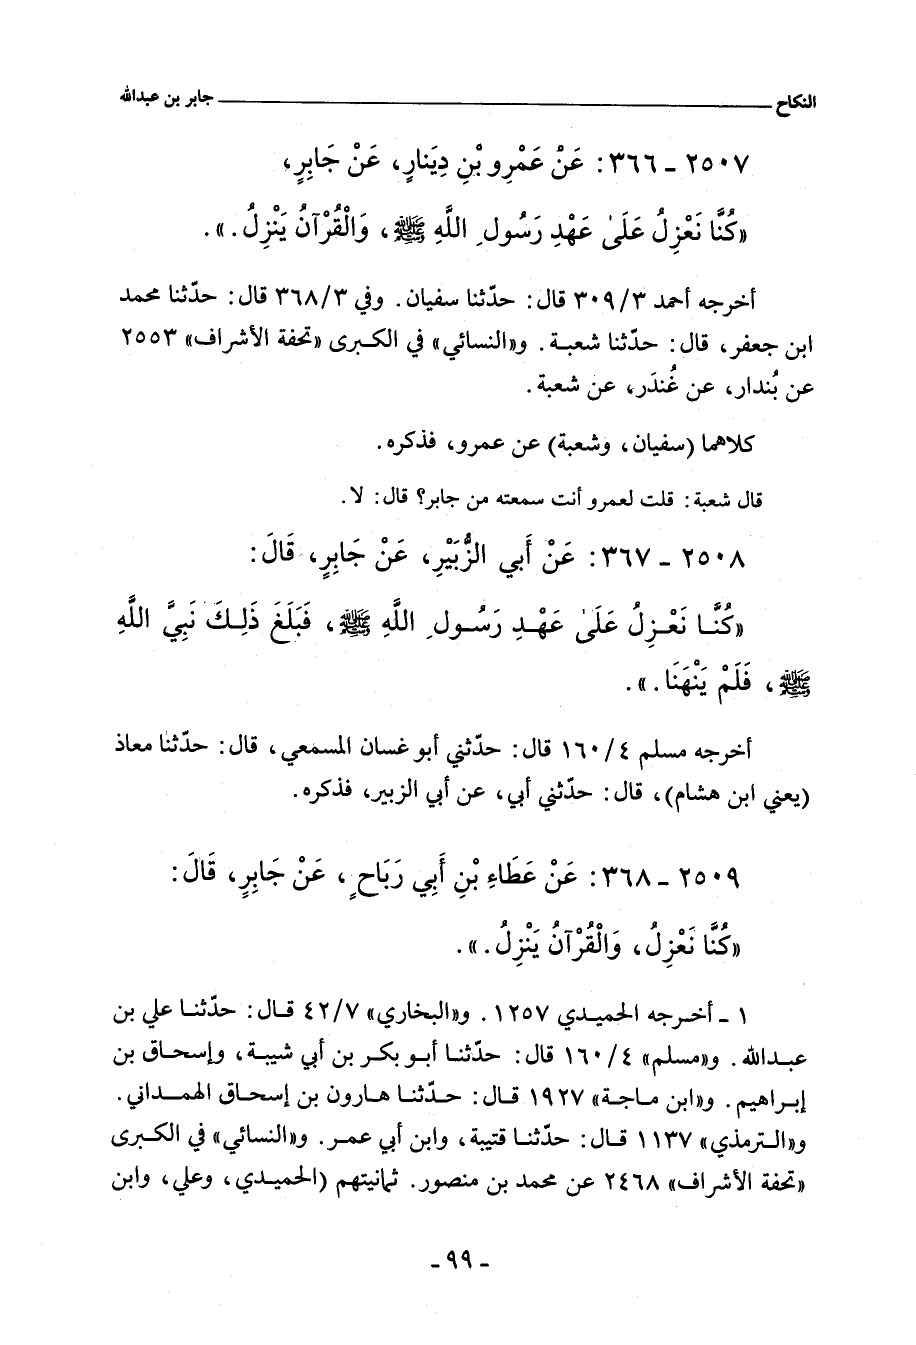 النكاح ـــــــــــــــــ جابر بن عبدالله
٢٥٠٧ ـ ٣٦٦: عَنْ عَمْرِو بْنِ دِينَارٍ، عَنْ جَابِرٍ،
«كُنَّا نَعْزِلُ عَلَىٰ عَهْدِ رَسُولِ اللَّهِ ﷺ، وَالْقُرْآنُ يَنْزِلُ.».
أخرجه أحمد ٣٠٩/٣ قال: حدّثنا سفيان. وفي ٣٦٨/٣ قال: حدّثنا محمد
ابن جعفر، قال: حدّثنا شعبة. و«النسائي» في الكبرى «تحفة الأشراف» ٢٥٥٣
عن بُندار، عن غُندَر، عن شعبة.
كلاهما (سفيان، وشعبة) عن عمرو، فذكره.
قال شعبة: قلت لعمرو أنت سمعته من جابر؟ قال: لا.
٢٥٠٨ ـ ٣٦٧: عَنْ أَبي الزُّبَيْرِ، عَنْ جَابِرٍ، قَالَ:
«كُنَّا نَعْزِلُ عَلَىٰ عَهْدِ رَسُولِ اللَّهِ ﷺ، فَبَلَغَ ذَلِكَ نَبِيَّ اللَّهِ
ﷺ، فَلَمْ يَنْهَنَا.».
أخرجه مسلم ١٦٠/٤ قال: حدّثني أبو غسان المسمعي، قال: حدّثنا معاذ
(يعني ابن هشام)، قال: حدّثني أبي، عن أبي الزبير، فذكره.
٢٥٠٩ ـ ٣٦٨: عَنْ عَطَاءِ بْنِ أَبِي رَبَاحٍ، عَنْ جَابِرٍ، قَالَ:
«كُنَّا نَعْزِلُ، وَالْقُرْآنُ يَنْزِلُ.».
١ ـ أخرجه الحميدي ١٢٥٧. و«البخاري» ٤٢/٧ قال: حدّثنا علي بن
عبدالله. و«مسلم» ١٦٠/٤ قال: حدّثنا أبو بكر بن أبي شيبة، وإسحاق بن
إبراهيم. و«ابن ماجة» ١٩٢٧ قال: حدّثنا هارون بن إسحاق الهمداني.
و«الترمذي» ١١٣٧ قال: حدّثنا قتيبة، وابن أبي عمر. و«النسائي» في الكبرى
«تحفة الأشراف» ٢٤٦٨ عن محمد بن منصور. ثمانيتهم (الحميدي، وعلي، وابن
ـ ٩٩ ـ